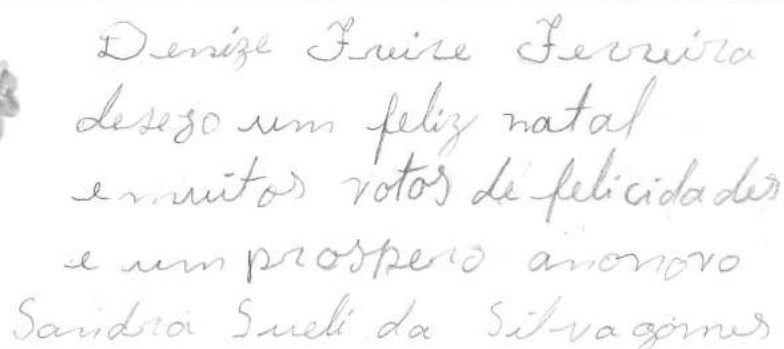 Denize Freire Ferreira
desezo um feliz natal
e muitos votos de felicidades
e um prospero anonovo
Sandra Sueli da Silva gomes